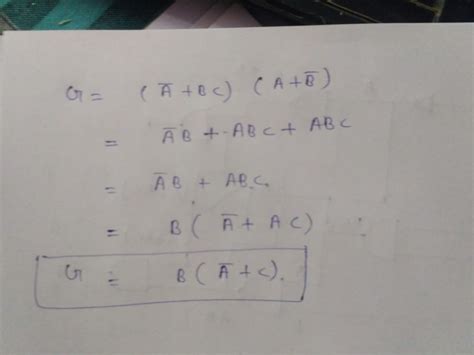 G = (A̅ + BC) (A + B̅)
= A̅B + ABC + ABC
= A̅B + ABC.
= B ( A̅ + AC )
G = B ( A̅ + C ).